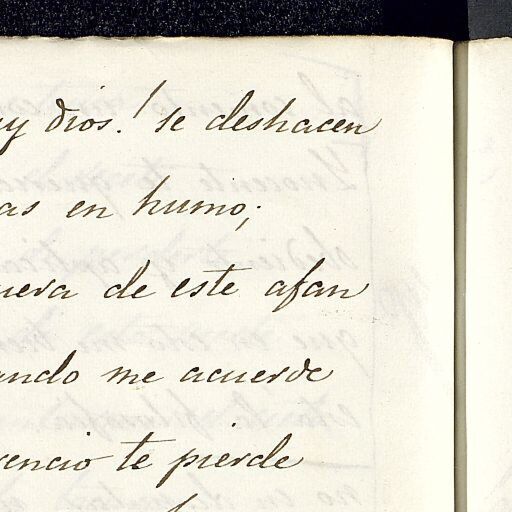 uy dios.! se deshacen
as en humo;
uera de este afan
ando me acuerde
encio te pierde